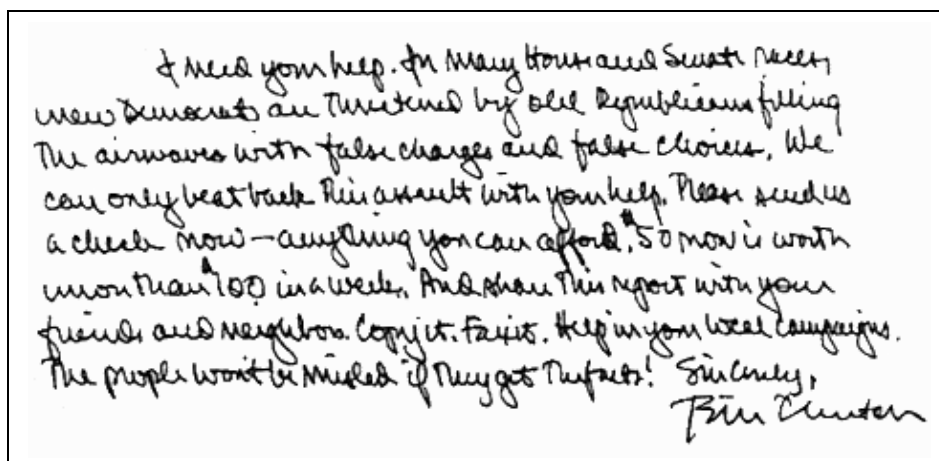 I need your help. In many House and Senate races,
new Democrats are threatened by old Republicans filling
the airwaves with false charges and false choices. We
can only beat back this assault with your help. Please send us
a check now—anything you can afford. $50 now is worth
more than $100 in a week. And share this report with your
friends and neighbors. Copy it. Fax it. Help in your local campaigns.
The people won't be misled if they get the facts! Sincerely,
Bill Clinton